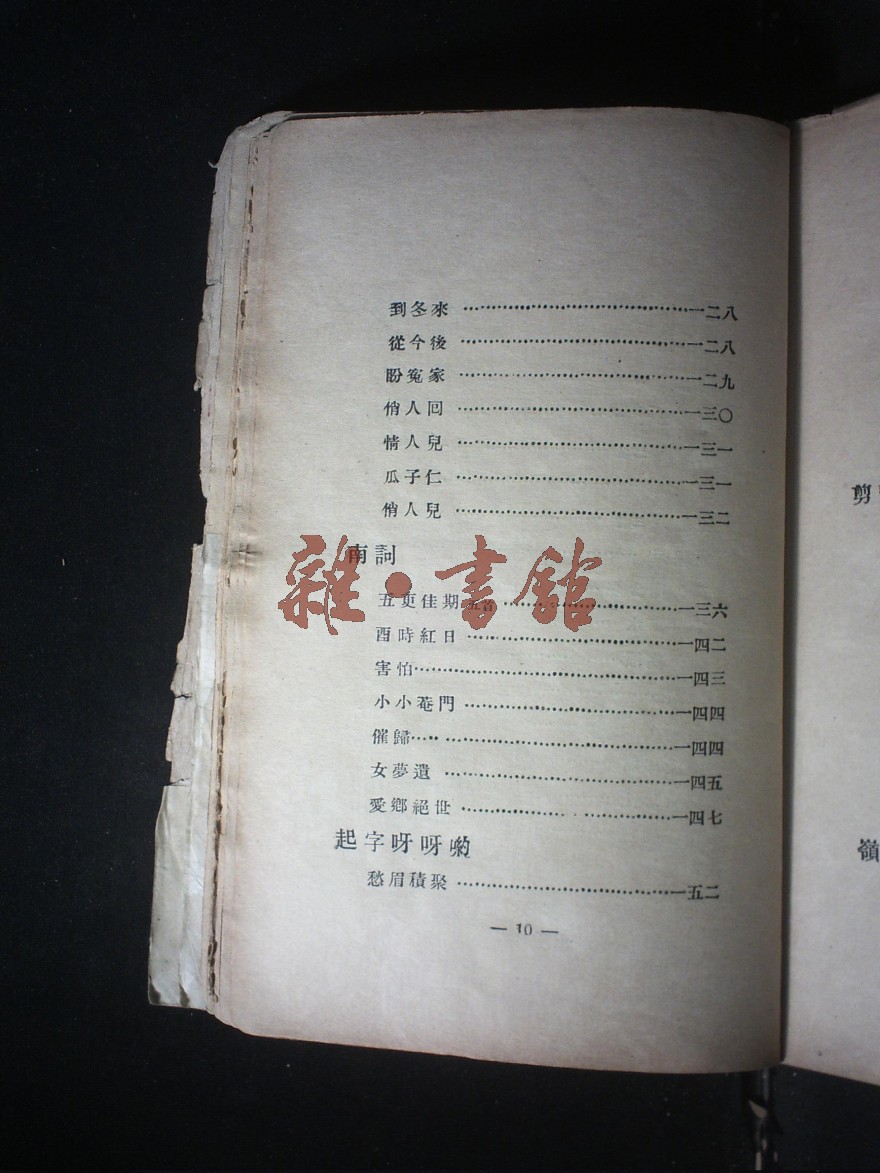 到冬來…………一二八
從今後…………一二八
盼寃家…………一二九
俏人回…………一三〇
情人兒…………一三一
瓜子仁…………一三一
俏人兒…………一三二
南詞
五更佳期…………一三六
酉時紅日…………一四二
害怕…………一四三
小小菴門…………一四四
催歸…………一四四
女夢遺…………一四五
愛鄉絕世…………一四七
起字呀呀喲
愁眉積聚…………一五二
— 10 —
雜·書館
剪
嶺